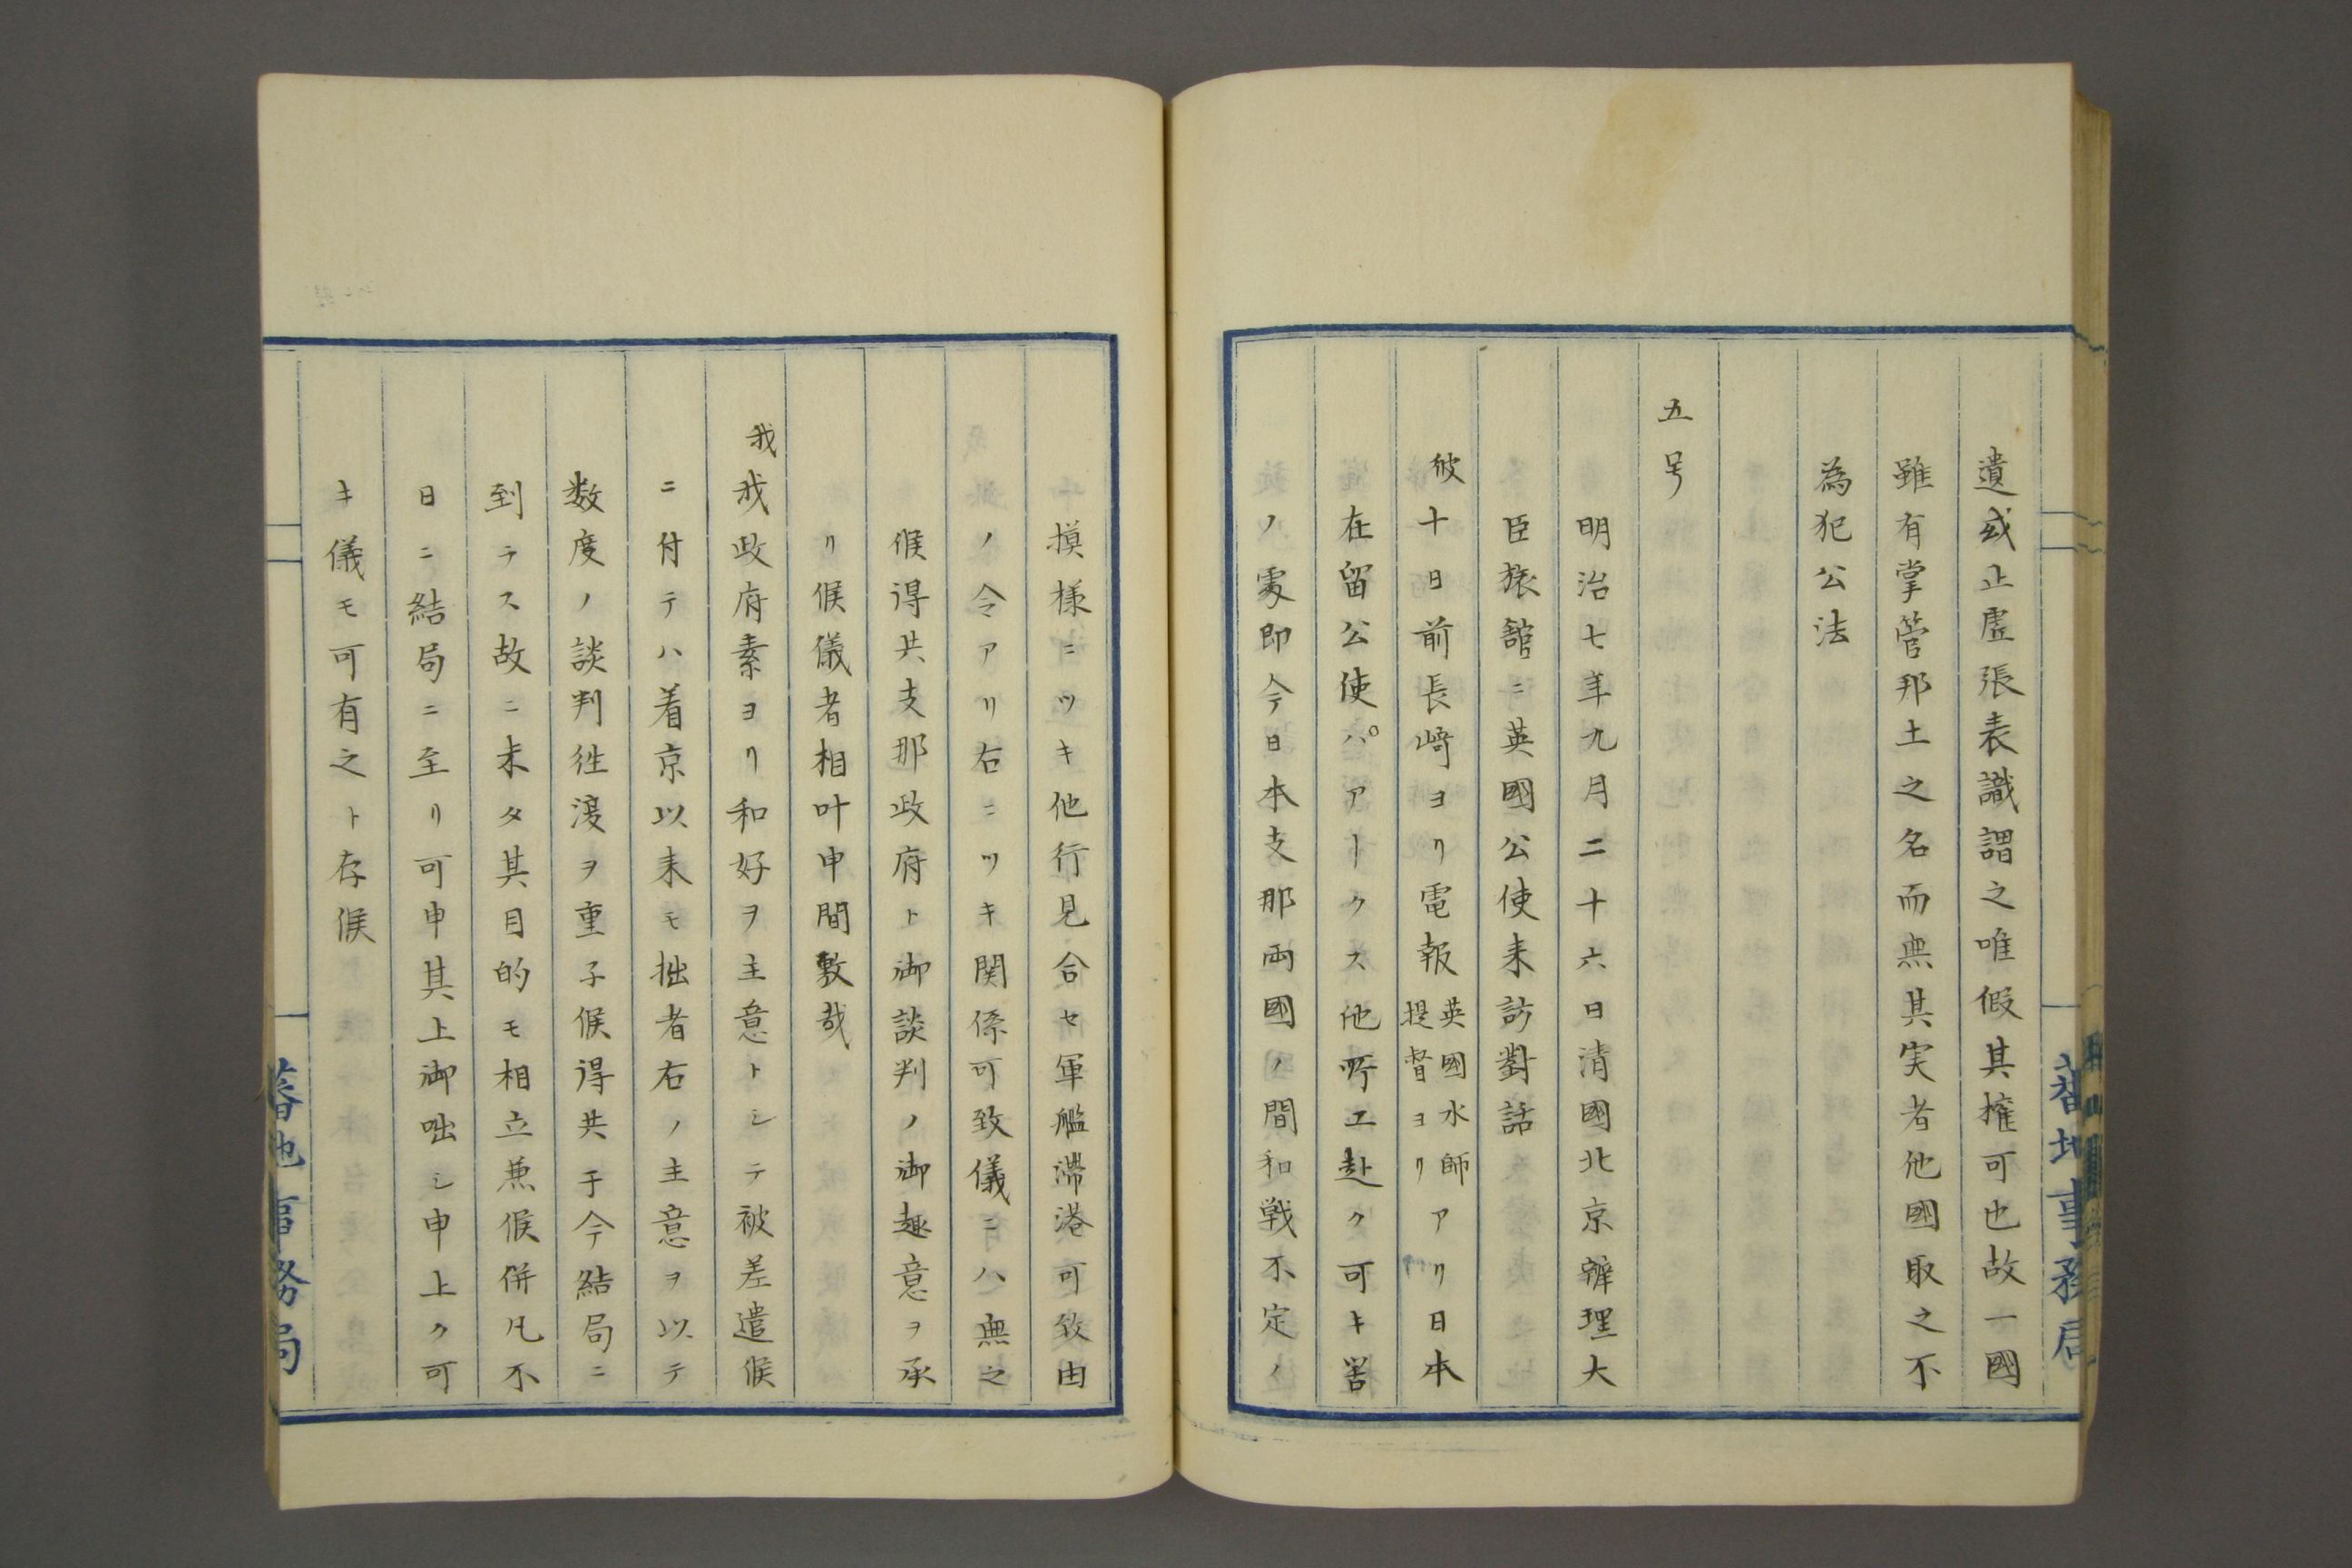 遺或止虚張表識謂之唯假其擁可也故一國
雖有掌管邦土之名而無其実者他國取之不
為犯公法
五号
明治七年九月二十六日清國北京辦理大
臣旅舘ニ英國公使来訪對話
彼十日前長崎ヨリ電報英國水師提督ヨリアリ日本
在留公使パアークス他所エ赴ク可キ筈
ノ處即今日本支那両國ノ間和戦不定ノ
摸様ニツキ他行見合セ軍艦滞港可致由
ノ令アリ右ニツキ関係可致儀ニハ無之
候得共支那政府ト御談判ノ御趣意ヲ承
リ候儀者相叶申間敷哉
我我政府素ヨリ和好ヲ主意トシテ被差遣候
ニ付テハ着京以来モ拙者右ノ主意ヲ以テ
数度ノ談判徃復ヲ重子候得共于今結局ニ
到ラス故ニ未タ其目的モ相立兼候併凡不
日ニ結局ニ至リ可申其上御咄シ申上ク可
キ儀モ可有之ト存候
蕃地事務局
蕃地事務局